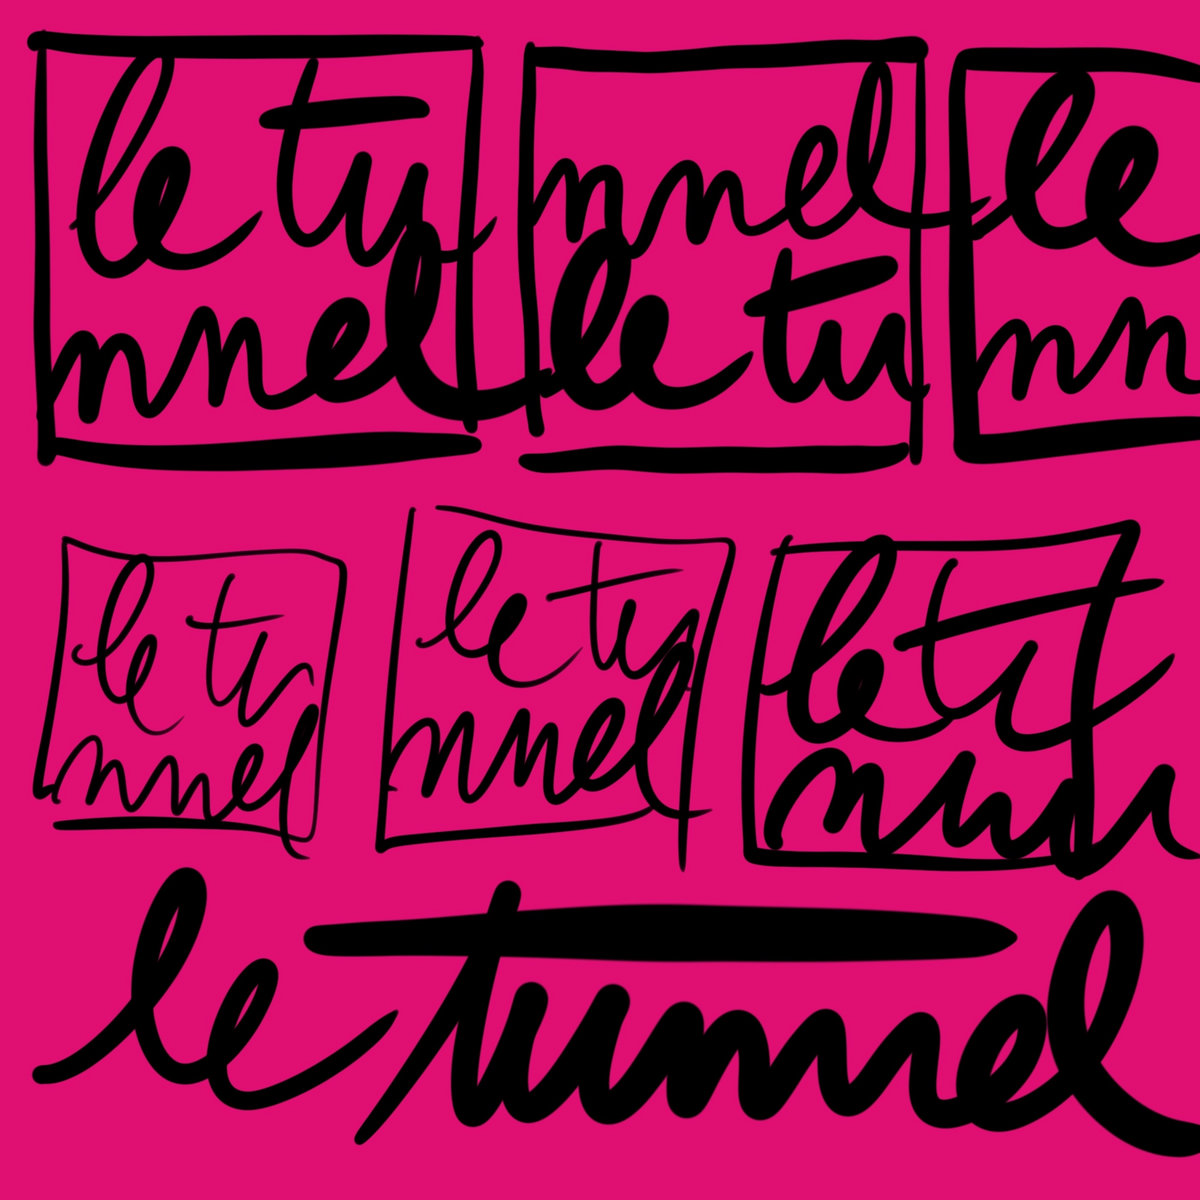 le tu nnel le
nnel le tu nn
le tu le tu le tu
nnel nnel nnel
le tunnel